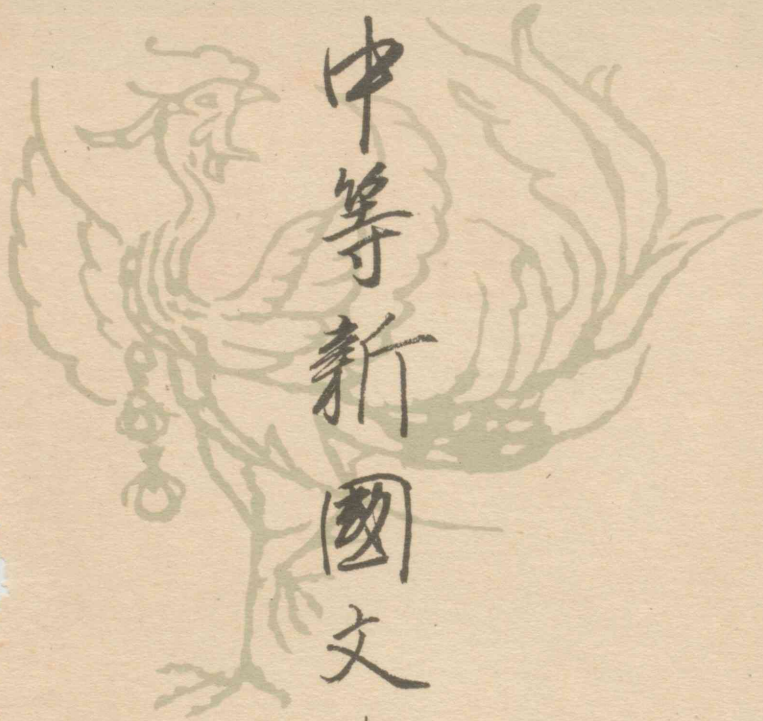 中等新國文